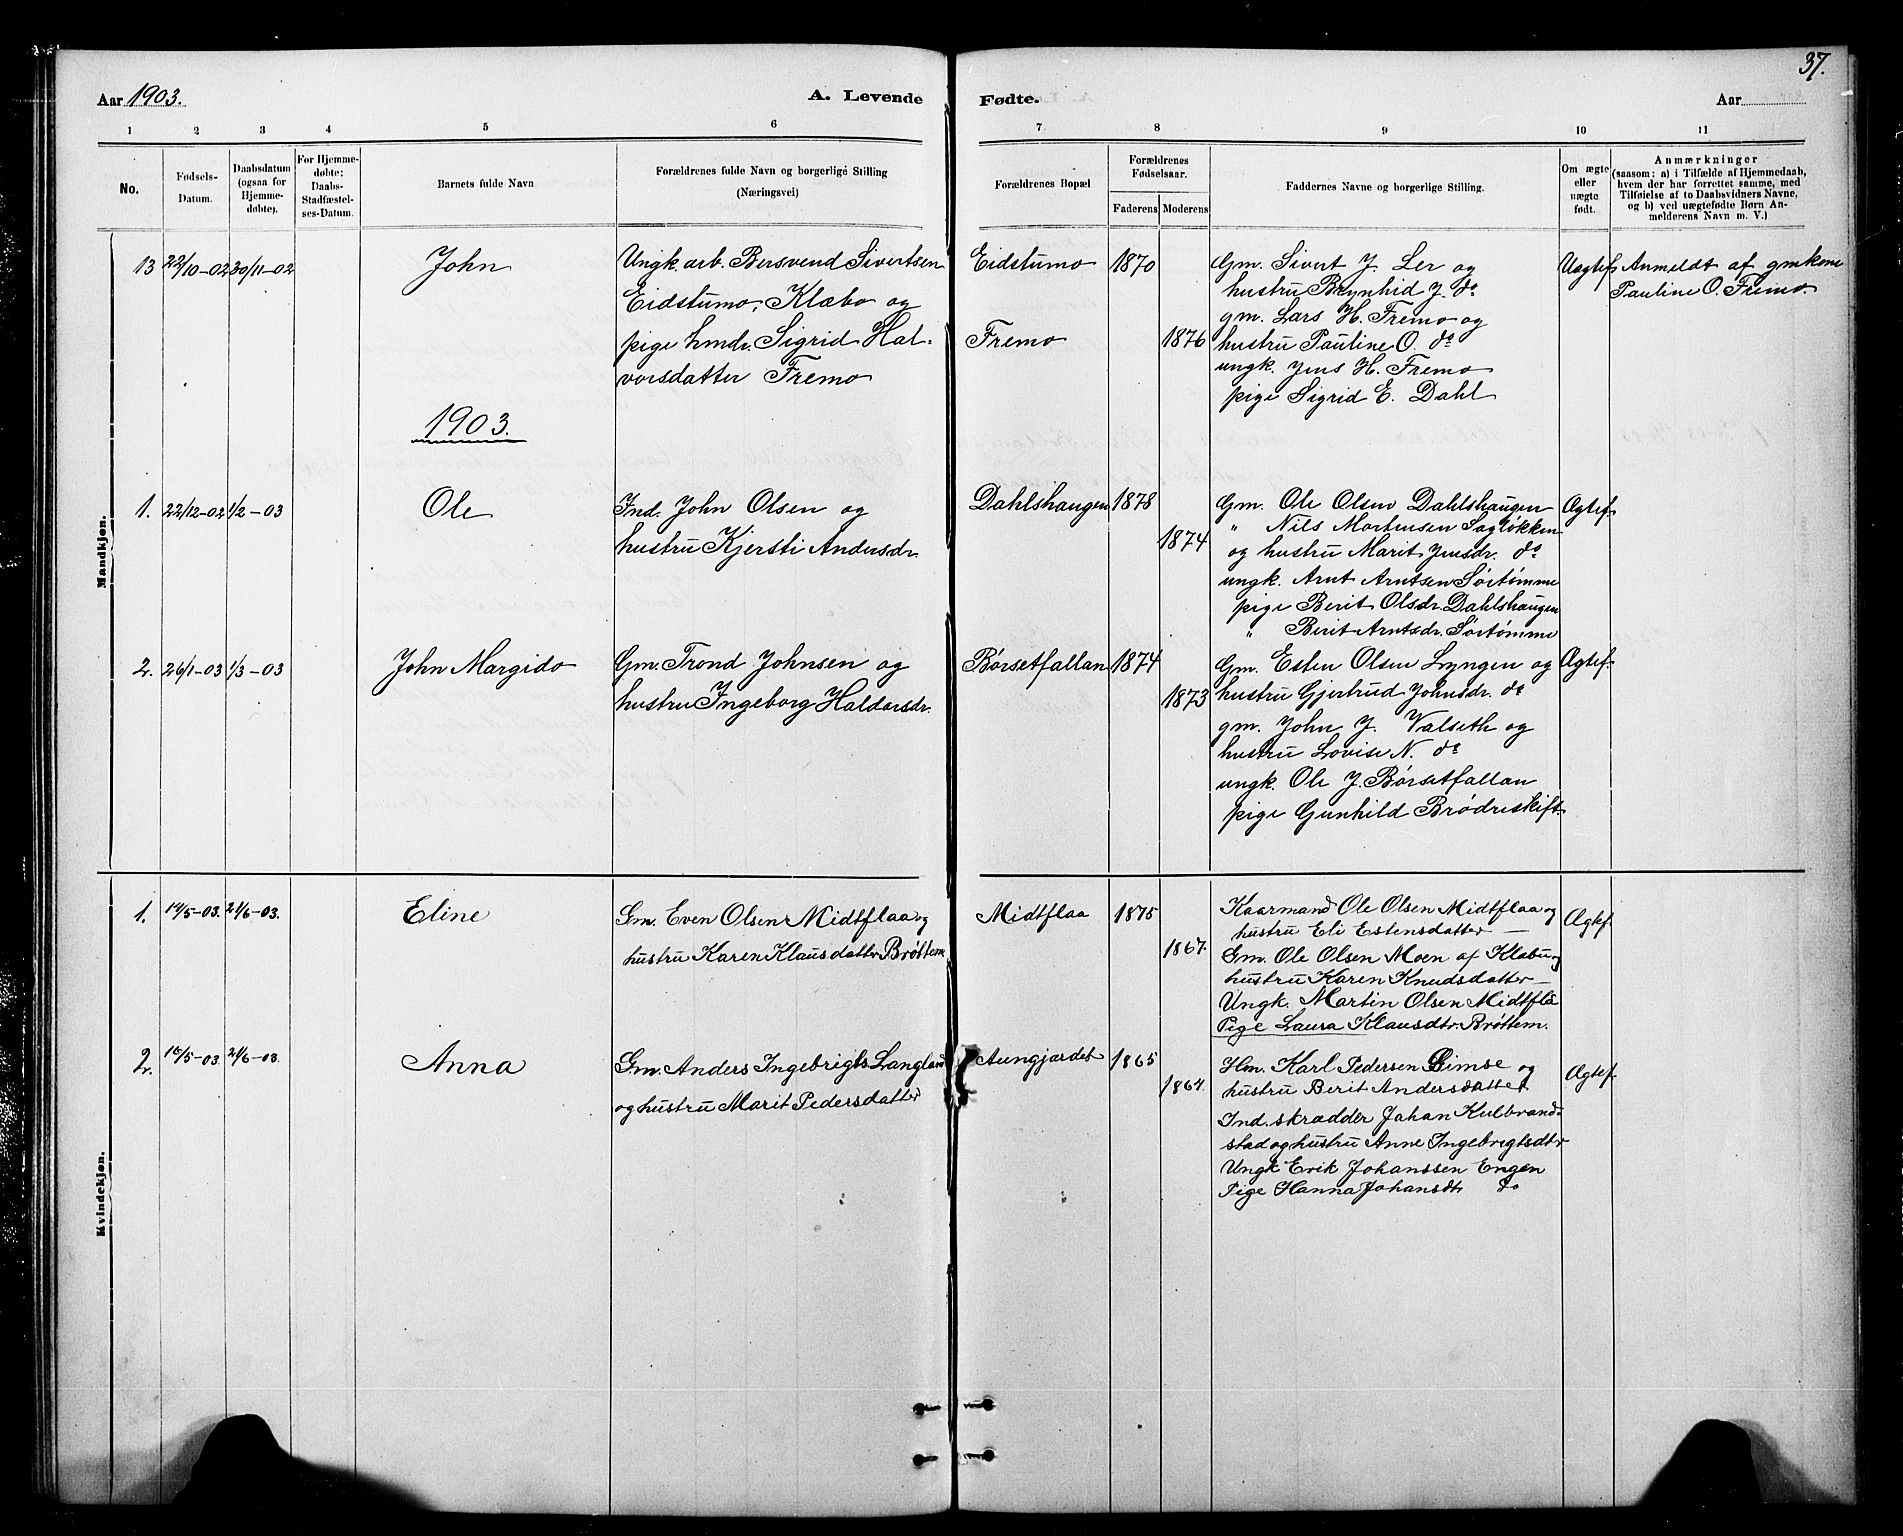 Aar 1903.
A. Levende
Fødte.
Aar
37.
1 2 3 4 5 6 7 8 9 10 11
No.
Fødsels-
Datum.
Daabsdatum
(ogsaa for
Hjemme-
døbte).
For Hjemme-
døbte:
Daabs-
Stadfæstel-
ses-Datum.
Barnets fulde Navn
Forældrenes fulde Navn og borgerlige Stilling
(Næringsvei)
Forældrenes Bopæl
Forældrenes
Fødselsaar.
Faderens Moderens
Faddernes Navne og borgerlige Stilling.
Om ægte
eller
uægte
født.
Anmærkninger
(saasom: a) i Tilfælde af Hjemmedaab,
hvem der har forrettet samme, med
Tilføielse af to Daabsvidners Navne,
og b) ved uægtefødte Børn An-
melderens Navn m. V.)
Mandkjøn.
13 22/10-02 30/11-02 John
Ungk. arb. Bersvend Sivertsen
Eidstumo, Klæbo og
pige hmdr. Sigrid Hal-
vorsdatter Fremo
Eidstumo 1870
Fremo 1876
Gm. Sivert J. Ler og
hustru Brynhid J. do
gm. Lars H. Fremo og
hustru Pauline O. do
ungk. Jens H. Fremo
pige Sigrid E. Dahl
Uægtef.
Anmeldt af gmkone
Pauline O. Fremo.
1903.
1. 22/12-02 1/2-03 Ole
Ind. John Olsen og
hustru Kjersti Andersdr.
Dahlshaugen 1878
1874
Gm. Ole Olsen Dahlshaugen
" Nils Mortensen Sagløkken
og hustru Marit Jensdr. do
ungk. Arnt Arntsen Sørtømme
pige Berit Olsdr. Dahlshaugen
" Berit Arntsdr. Sørtømme
Ægtef.
2. 26/1-03 1/3-03 John Margido
Gm. Trond Johnsen og
hustru Ingeborg Haldorsdr.
Børsetfallan 1874
1873
Gm. Esten Olsen Lyngen og
hustru Gjertrud Johnsdr. do
gm. John J. Valseth og
hustru Lovise N. do
ungk. Ole J. Børsetfallan
pige Gunhild Brødreskift.
Ægtef.
Kvindekjøn.
1. 14/5-03. 21/6-03. Eline
Gm. Even Olsen Midtflaa og
hustru Karen Klausdatter Brøttem
Midtflaa 1875
1867.
Kaarmand Ole Olsen Midtflaa og
hustru Eli Estensdatter —
Gm. Ole Olsen Moen af Klæbu og
hustru Karen Knudsdatter —
Ungk. Martin Olsen Midtflå
Pige Laura Klausdtr. Brøttem.
Ægtef.
2. 21/6-03. Anna
Gm. Anders Ingebrigts Langland
og hustru Marit Pedersdatter
Aungjærdet 1865
1864.
Hm. Karl Pedersen Gimse og
hustru Berit Andersdatter
Ind. skrædder Johan Kulbrand-
stad og hustru Anne Ingebrigtsdtr
Ungk Erik Johanssen Engen
Pige Hanna Johansdt do
Ægtef.